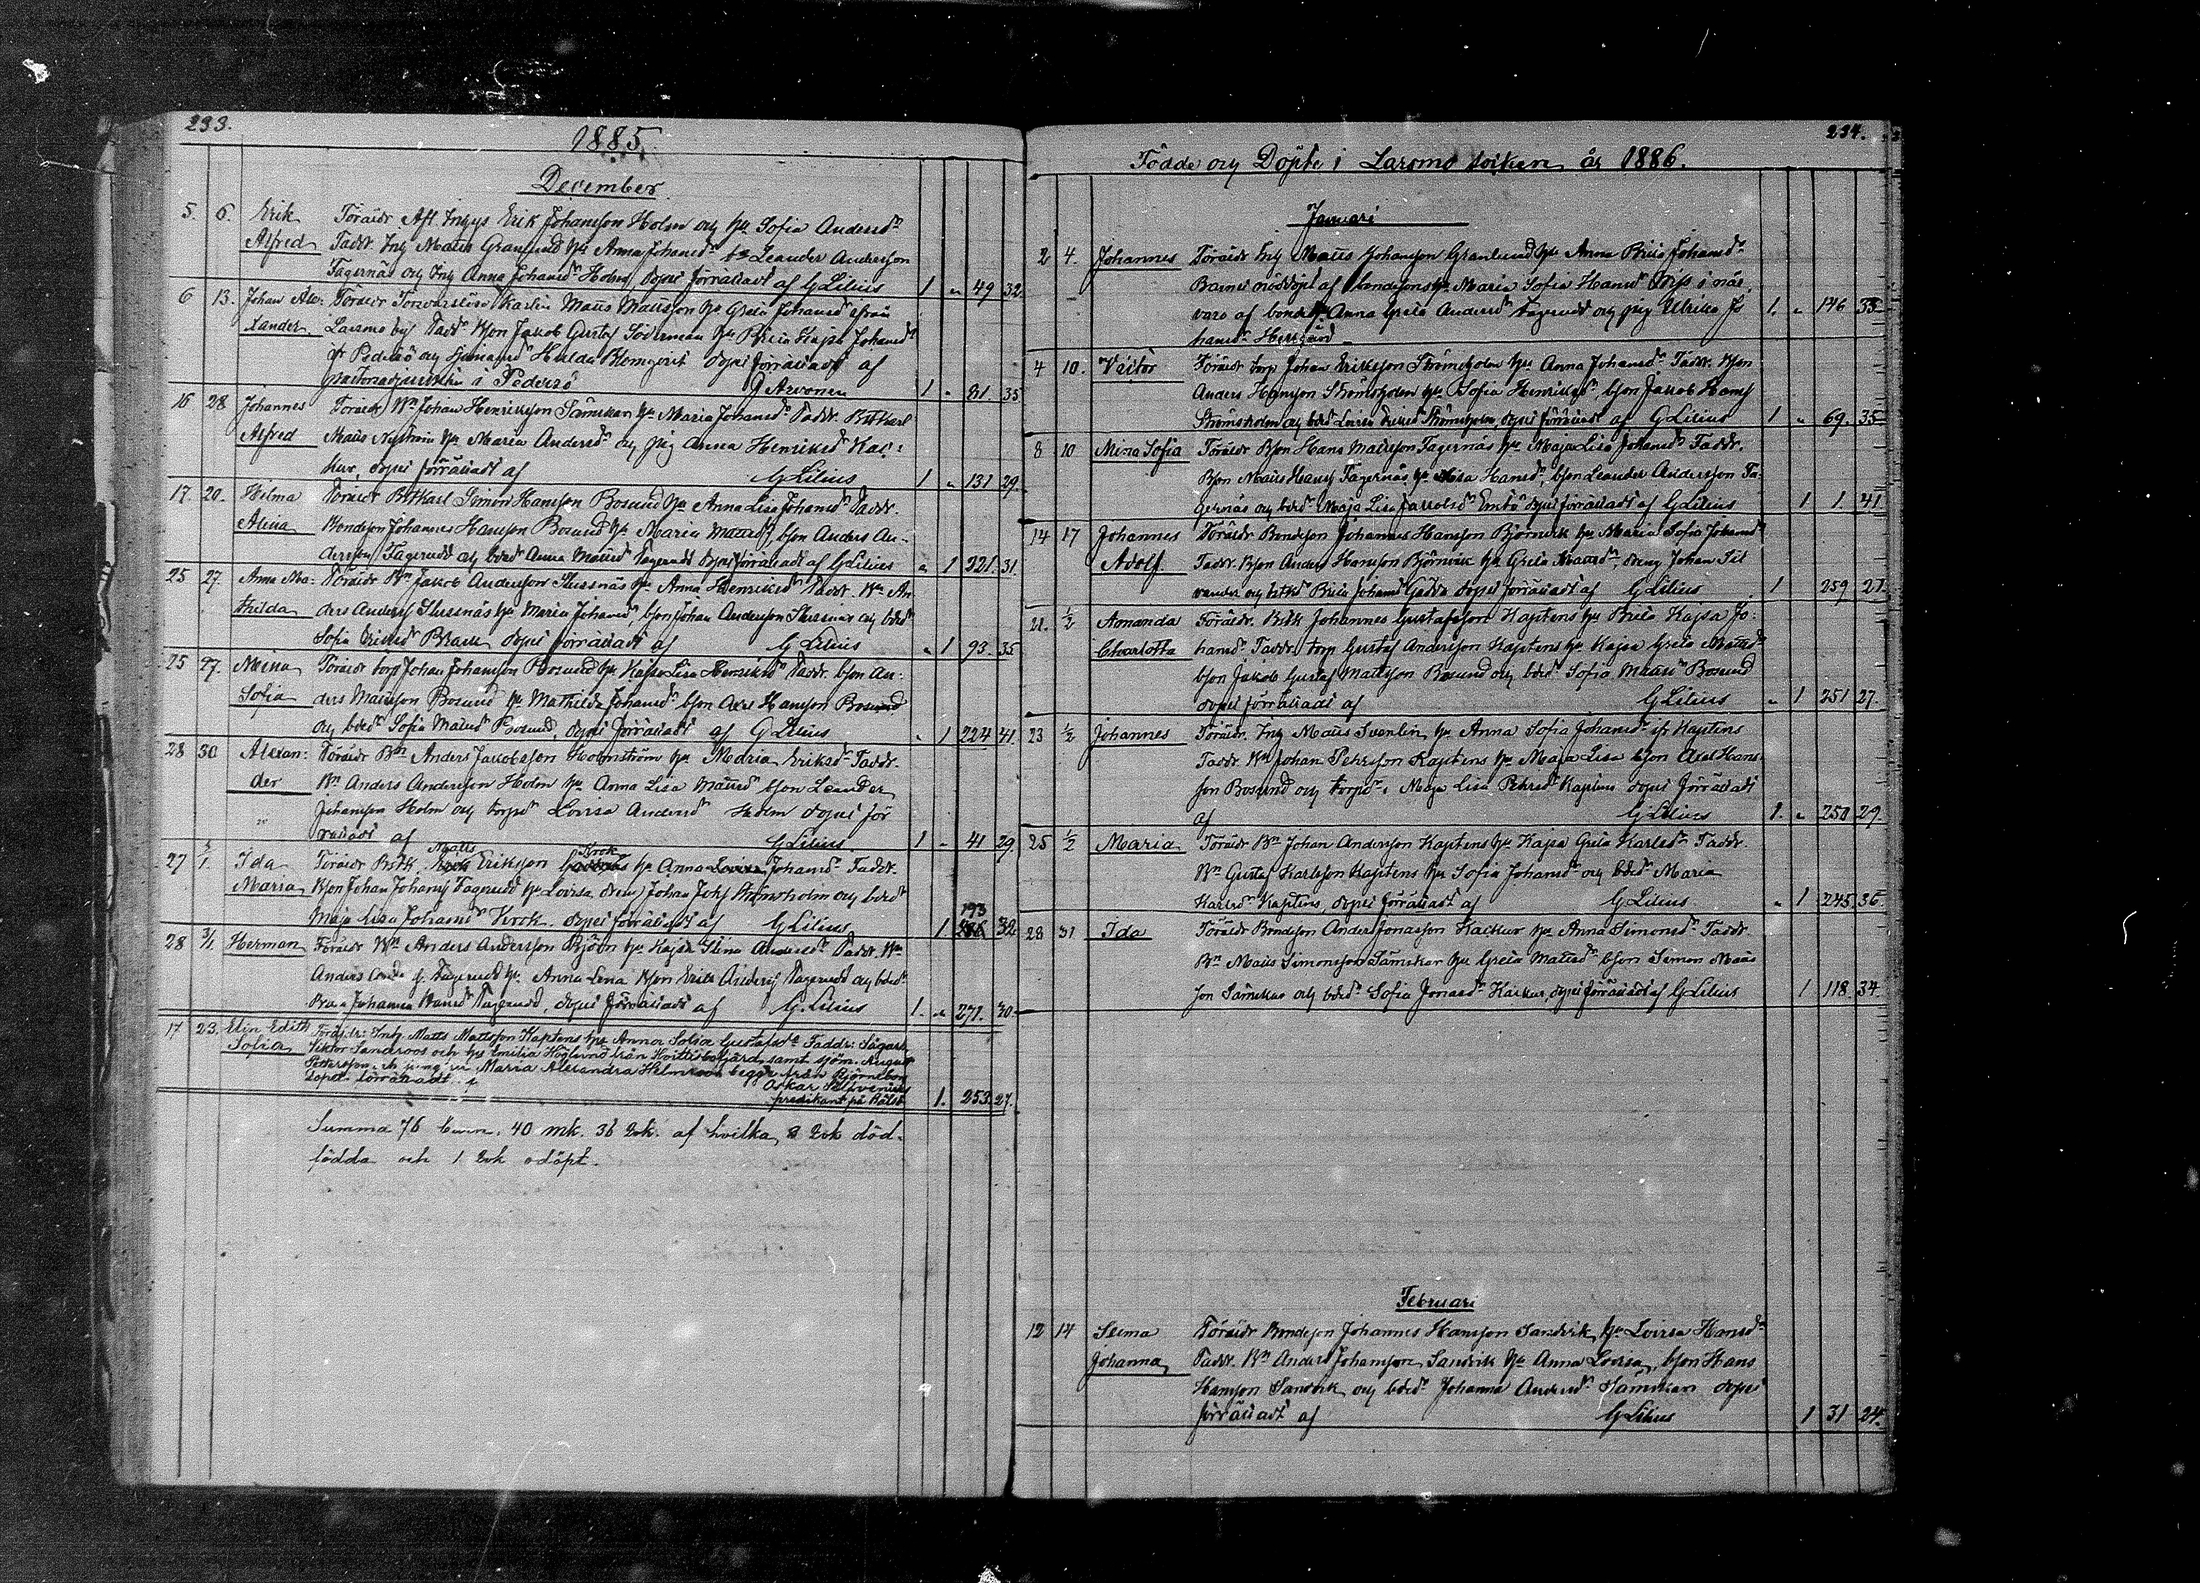 233.
1885
December
5. 6. Erik Föräldr Afl Inhys Erik Johansson Holm och hu Sofia Andersdr
Alfred Faddr Inh Matts Granlund hu Anna Johansdr bs Leander Andersson
Fagernäs och Inh Anna Johansdr Holm, dopet förrättadt af G Lilius 1 „ 49 32
6 13. Johan Alex- Föräldr Matts Mattsson hu Greta Johansdr ifrån
xander Larsmo by Faddr Bson Jakob Gustaf hu Brita Kajsa Johansdr
ifr Pedersö och Hulda Blomqvist dopet förrättadt af
i Pedersö J Arvonen 1 „ 81 35
16 28 Johannes Föräldr Bn Johan Henriksson Sämskar hu Maria Johansdr Faddr.
Alfred Matts Nyström hu Maria Andersdr och pig Anna Henriksd Kac:
kur, dopet förrättadt af G Lilius 1 „ 131 29
17. 20. Helma Föräldr Simon Hansson Bosund hu Anna Lisa Johansdr Faddr.
Alina Bondeson Johannes Hansson Bosund hu Maria Mattsdr, bson Anders An-
dersson Fagerudd och bdr Anna Mattsd Fagerudd dopet förrättadt af G Lilius „ 1 221 31.
25 27. Anna Ma- Föräldr Bn Jakob Andersson Slussnäs hu Anna Henriksd Faddr. Bn An-
thilda ders Anderss Slussnäs hu Maria Johansd, bson Johan Andersson Slussnäs och bdr
Sofia Eriksd dopet förrättadt af G Lilius „ 1 93 35
25 27. Mina Föräldr torp Johan Johansson Bosund hu Kajsa Lisa Henriksd Faddr. bson An-
Sofia ders Mattsson Bosund hu Mathilda Johansd bson Axel Hansson Bosund
och bdr Sofia Mattsd Bosund, dopet förrättadt af G Lilius „ 1 224 41.
28 30 Alexan- Föräldr Bn Anders Jakobsson Holmström hu Maria Eriksd Faddr.
der Bn Anders Andersson Holm hu Anna Lisa Mattsd bson Leander
Johansson Holm och torpd Lovisa Andersd Holm dopet för
rättadt af G Lilius. 1 „ 41 29
Matts Krok
27 Ida Föräldr Eriksson hu Anna Lovisa Johansd Faddr.
Maria Bson Johan Johanss Fagerudd hu Lovisa, dreng Johan Johss Strömsholm och bdr
193
Maja Lisa Johansd Krok. dopet förrättadt af G Lilius 1 32
28 3/1 Herman Föräldr Bn Anders Andersson Björn hu Kajsa Stina Andersd Faddr. Bn
Anders Fagerudd hu Anna Lena Bson Erik Anderss Fagerudd och bdr
Johanna Fagerudd, dopet förrättadt af G. Lilius 1. „ 271. 30
17 23. Elin Edith Föräldr: Inh Matts Mattsson Kaptens hu Anna Sofia Gustafsd Faddr: Sågark
Sofia Viktor Sandroos och hu Emilia Höglund från Kvittisbofjärd samt sjöm. August
Pettersson och Maria Alexandra Helmroos bägge från Björneborg
dopet förrättadt af Oskar
predikant på Räfsö 1. 253. 27.
Summa 76 barn, 40 mk. 36 qvk. af hvilka 2 qvk död-
födda och 1 qvk odöpt.
234.
Födde och Döpte i Larsmo socken år 1886.
Januari
2 4. Johannes Föräldr Inh Matts Johansson Granlund hu Anna Brita Johansd
Barnet nöddöpt af bondesons hu Maria Sofia Hansd i när.
varo af bonde hu Anna Greta Andersd Fagerudd och pig Ulrika Jo
hansd Herrgård 1. „ 146 33
4 10. Victor Föräldr torp Johan Eriksson Strömsholm hu Anna Johansd. Faddr. Bson
Anders Hansson Strömsholm hu Sofia Henriksd, bson Jakob Hanss
Strömsholm och bdr Lovisa Eriksd Strömsholm, dopet förrättadt af G Lilius 1 „ 69. 35
8 10 Mina Sofia Föräldr Bson Hans Mattsson Fagernäs hu Maja Lisa Johansd Faddr.
Bson Matts Hanss Fagernäs hu Hansd, bson Leander Andersson Fa-
gernäs och bdr Maja Lisa Jakobsd Emtö dopet förrättadt af G Lilius 1 1. 41
14 17 Johannes Föräldr Bondeson Johannes Hansson Björnvik hu Maria Sofia Johansd
Adolf. Faddr. Bson Anders Hansson Björnvik hu Greta Mattsd, dreng Johan Sil
vander och Brita Johansd Gädda dopet förrättadt af G Lilius 1 259 27
21. 1/2 Amanda Föräldr. Johannes Gustafsson Kaptens hu Brita Kajsa Jo-
Charlotta hansd Faddr. torp Gustaf Andersson Kaptens hu Kajsa Greta Mattsd
bson Jakob Gustaf Mattsson Bosund och bdr. Sofia Mattsd Bosund
dopet förrättadt af G Lilius „ 1 251 27.
23 1/2 Johannes Föräldr. Inh Matts Svenlin hu Anna Sofia Johansd ifr Kaptens
Faddr. Bn Johan Pehrsson Kaptens hu Maja Lisa bson Axel Hans
son Bosund och torpd. Maja Lisa Pehrsd Kaptens dopet förrättadt
af G Lilius 1. „ 250 29.
25 1/2 Maria Föräldr Bn Johan Andersson Kaptens hu Kajsa Greta Karlsd Faddr.
Bn Gustaf Karlsson Kaptens hu Sofia Johansd och bdr Maria
Karlsd Kaptens, dopet förrättadt af G Lilius „ 1 245 36
28 31 Ida Föräldr Bondeson Anders Jonasson Kackur hu Anna Simonsd Faddr.
Bn Matts Simonsson Sämskar hu Greta Mattsd bson Simon Matts
son Sämskar och bdr. Sofia Jonasd Kackur, dopet förrättadt af G Lilius 1 118 34
Februari
12 14 Selma Föräldr Bondeson Johannes Hansson Sandvik hu Lovisa Hansd
Johanna Faddr. Bn Anders Johansson Sandvik hu Anna Lovisa, bson Hans
Hansson Sandvik och bdr. Johanna Andersd Sämskar dopet
förrättadt af G Lilius 1 31 24.